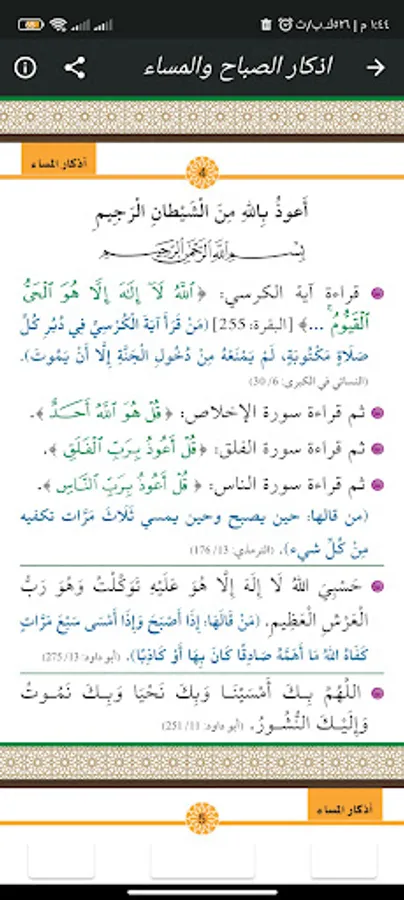 ١:٤٤ م | ٥٢٦ك.ب/ث
اذكار الصباح والمساء
أذكار المساء
4
أَعوذُ بِاللهِ مِنَ الْشَيْطانِ الْرَجِيمِ
بِسْمِ اللهِ الرَّحْمَنِ الرَّحِيمِ
قراءة آية الكرسي: ﴿ ٱللَّهُ لَآ إِلَٰهَ إِلَّا هُوَ ٱلْحَىُّ
ٱلْقَيُّومُ ۚ ...﴾ [البقرة: 255] (مَنْ قَرَأَ آيَةَ الْكُرْسِيِّ فِي دُبُرِ كُلِّ
صَلَاةٍ مَكْتُوبَةٍ، لَمْ يَمْنَعْهُ مِنْ دُخُولِ الجَنَّةِ إِلَّا أَنْ يَمُوتَ).
(النسائي في الكبرى: 6/ 30)
ثم قراءة سورة الإخلاص: ﴿ قُلْ هُوَ ٱللَّهُ أَحَدٌ ﴾.
ثم قراءة سورة الفلق: ﴿ قُلْ أَعُوذُ بِرَبِّ ٱلْفَلَقِ ﴾.
ثم قراءة سورة الناس: ﴿ قُلْ أَعُوذُ بِرَبِّ ٱلنَّاسِ ﴾.
(من قالها: حين يصبح وحين يمسي ثَلَاثَ مَرَّات تكفيه
مِنْ كُلِّ شيء). (الترمذي: 13/ 176)
حَسْبِيَ اللهُ لَا إِلَهَ إِلَّا هُوَ عَلَيْهِ تَوَكَّلْتُ وَهُوَ رَبُّ
الْعَرْشِ الْعَظِيمِ. (مَنْ قَالَهَا: إِذَا أَصْبَحَ وَإِذَا أَمْسَى سَبْعَ مَرَّاتٍ
كَفَاهُ اللهُ مَا أَهَمَّهُ صَادِقًا كَانَ بِهَا أَوْ كَاذِبًا). (أبو داود: 13/ 275)
اللَّهُمَّ بِـكَ أَمْسَيْنَـا وَبِكَ نَحْيَا وَبِـكَ نَمُـوتُ
وَإِلَيْـكَ النُّشُـورُ. (أبو داود: 11/ 251)
أذكار المساء
5